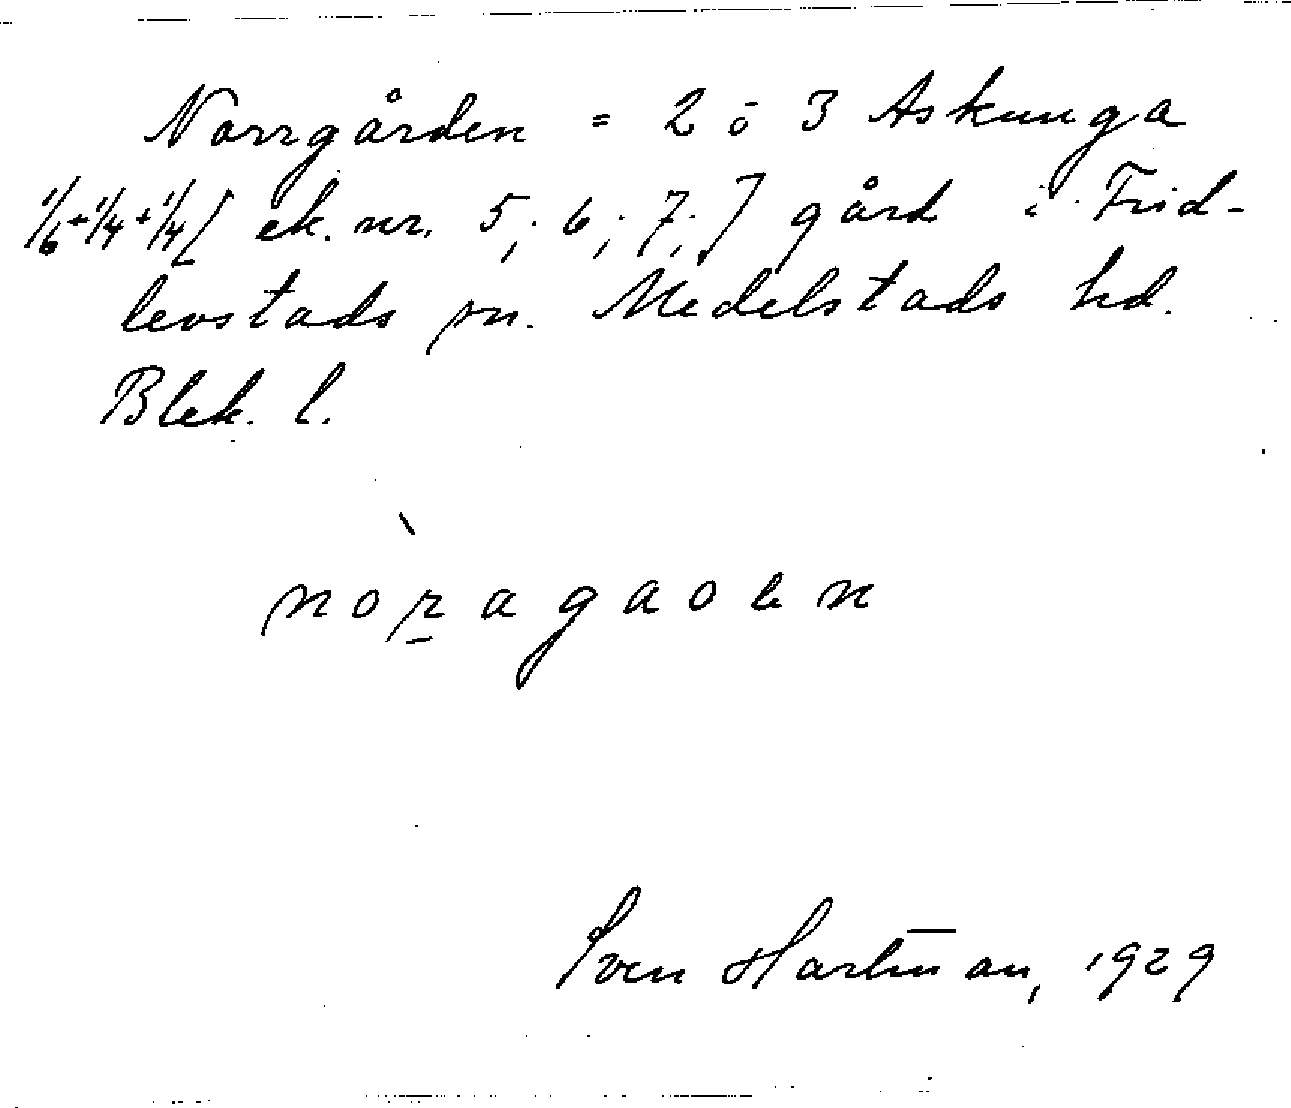 Norrgården = 2 o 3 Askunga
1/6+1/4+1/4 [ ek. nr. 5; 6; 7; ] gård i Frid-
levstads sn. Medelstads hd.
Blek. l.
nòragaoen
Sven Hartman, 1929